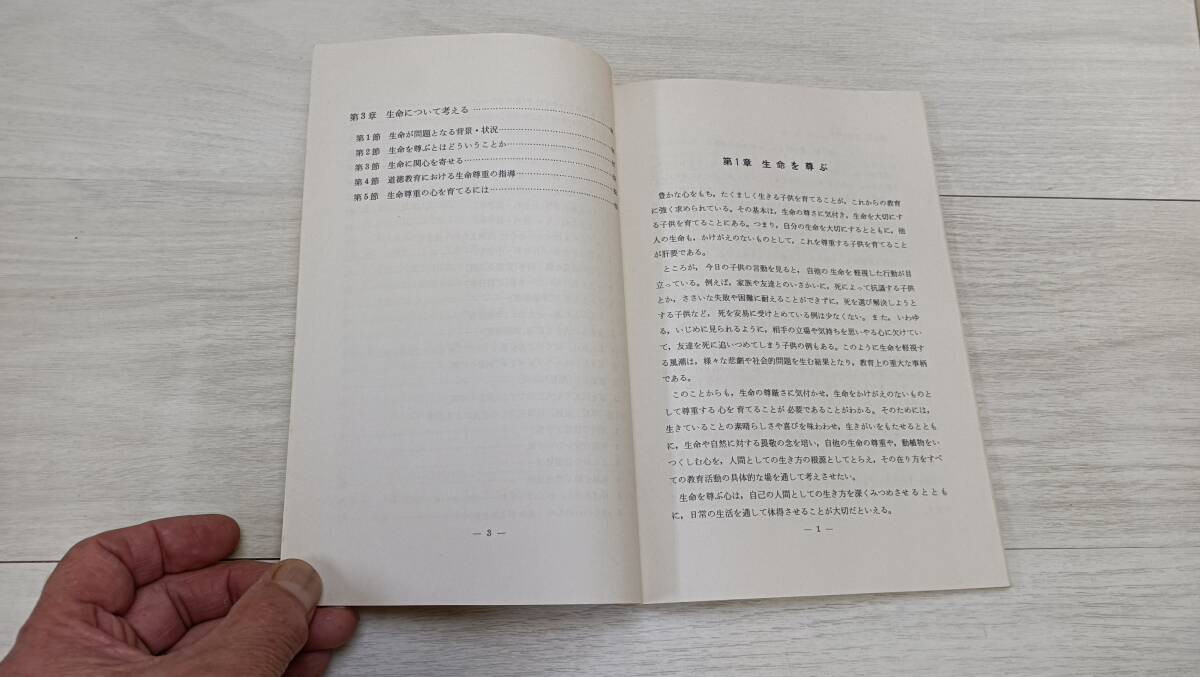 第3章 生命について考える……………………
第1節 生命が問題となる背景・状況……………………
第2節 生命を尊ぶとはどういうことか……………………
第3節 生命に関心を寄せる……………………
第4節 道徳教育における生命尊重の指導……………………
第5節 生命尊重の心を育てるには……………………
— 3 —
第1章 生命を尊ぶ
豊かな心をもち，たくましく生きる子供を育てることが，これからの教育
に強く求められている。その基本は，生命の尊さに気付き，生命を大切にす
る子供を育てることにある。つまり，自分の生命を大切にするとともに，他
人の生命も，かけがえのないものとして，これを尊重する子供を育てること
が肝要である。
ところが，今日の子供の言動を見ると，自他の生命を軽視した行動が目
立っている。例えば，家族や友達とのいさかいに，死によって抗議する子供
とか，ささいな失敗や困難に耐えることができずに，死を選び解決しようと
する子供など，死を安易に受けとめている例は少なくない。また，いわゆ
る，いじめに見られるように，相手の立場や気持ちを思いやる心に欠けてい
て，友達を死に追いつめてしまう子供の例もある。このように生命を軽視す
る風潮は，様々な悲劇や社会的問題を生む結果となり，教育上の重大な事柄
である。
このことからも，生命の尊厳さに気付かせ，生命をかけがえのないものと
して尊重する心を育てることが必要であることがわかる。そのためには，
生きていることの素晴らしさや喜びを味わわせ，生きがいをもたせるととも
に，生命や自然に対する畏敬の念を培い，自他の生命の尊重や，動植物をい
つくしむ心を，人間としての生き方の根源としてとらえ，その在り方をすべ
ての教育活動の具体的な場を通して考えさせたい。
生命を尊ぶ心は，自己の人間としての生き方を深くみつめさせるととも
に，日常の生活を通して体得させることが大切だといえる。
— 1 —